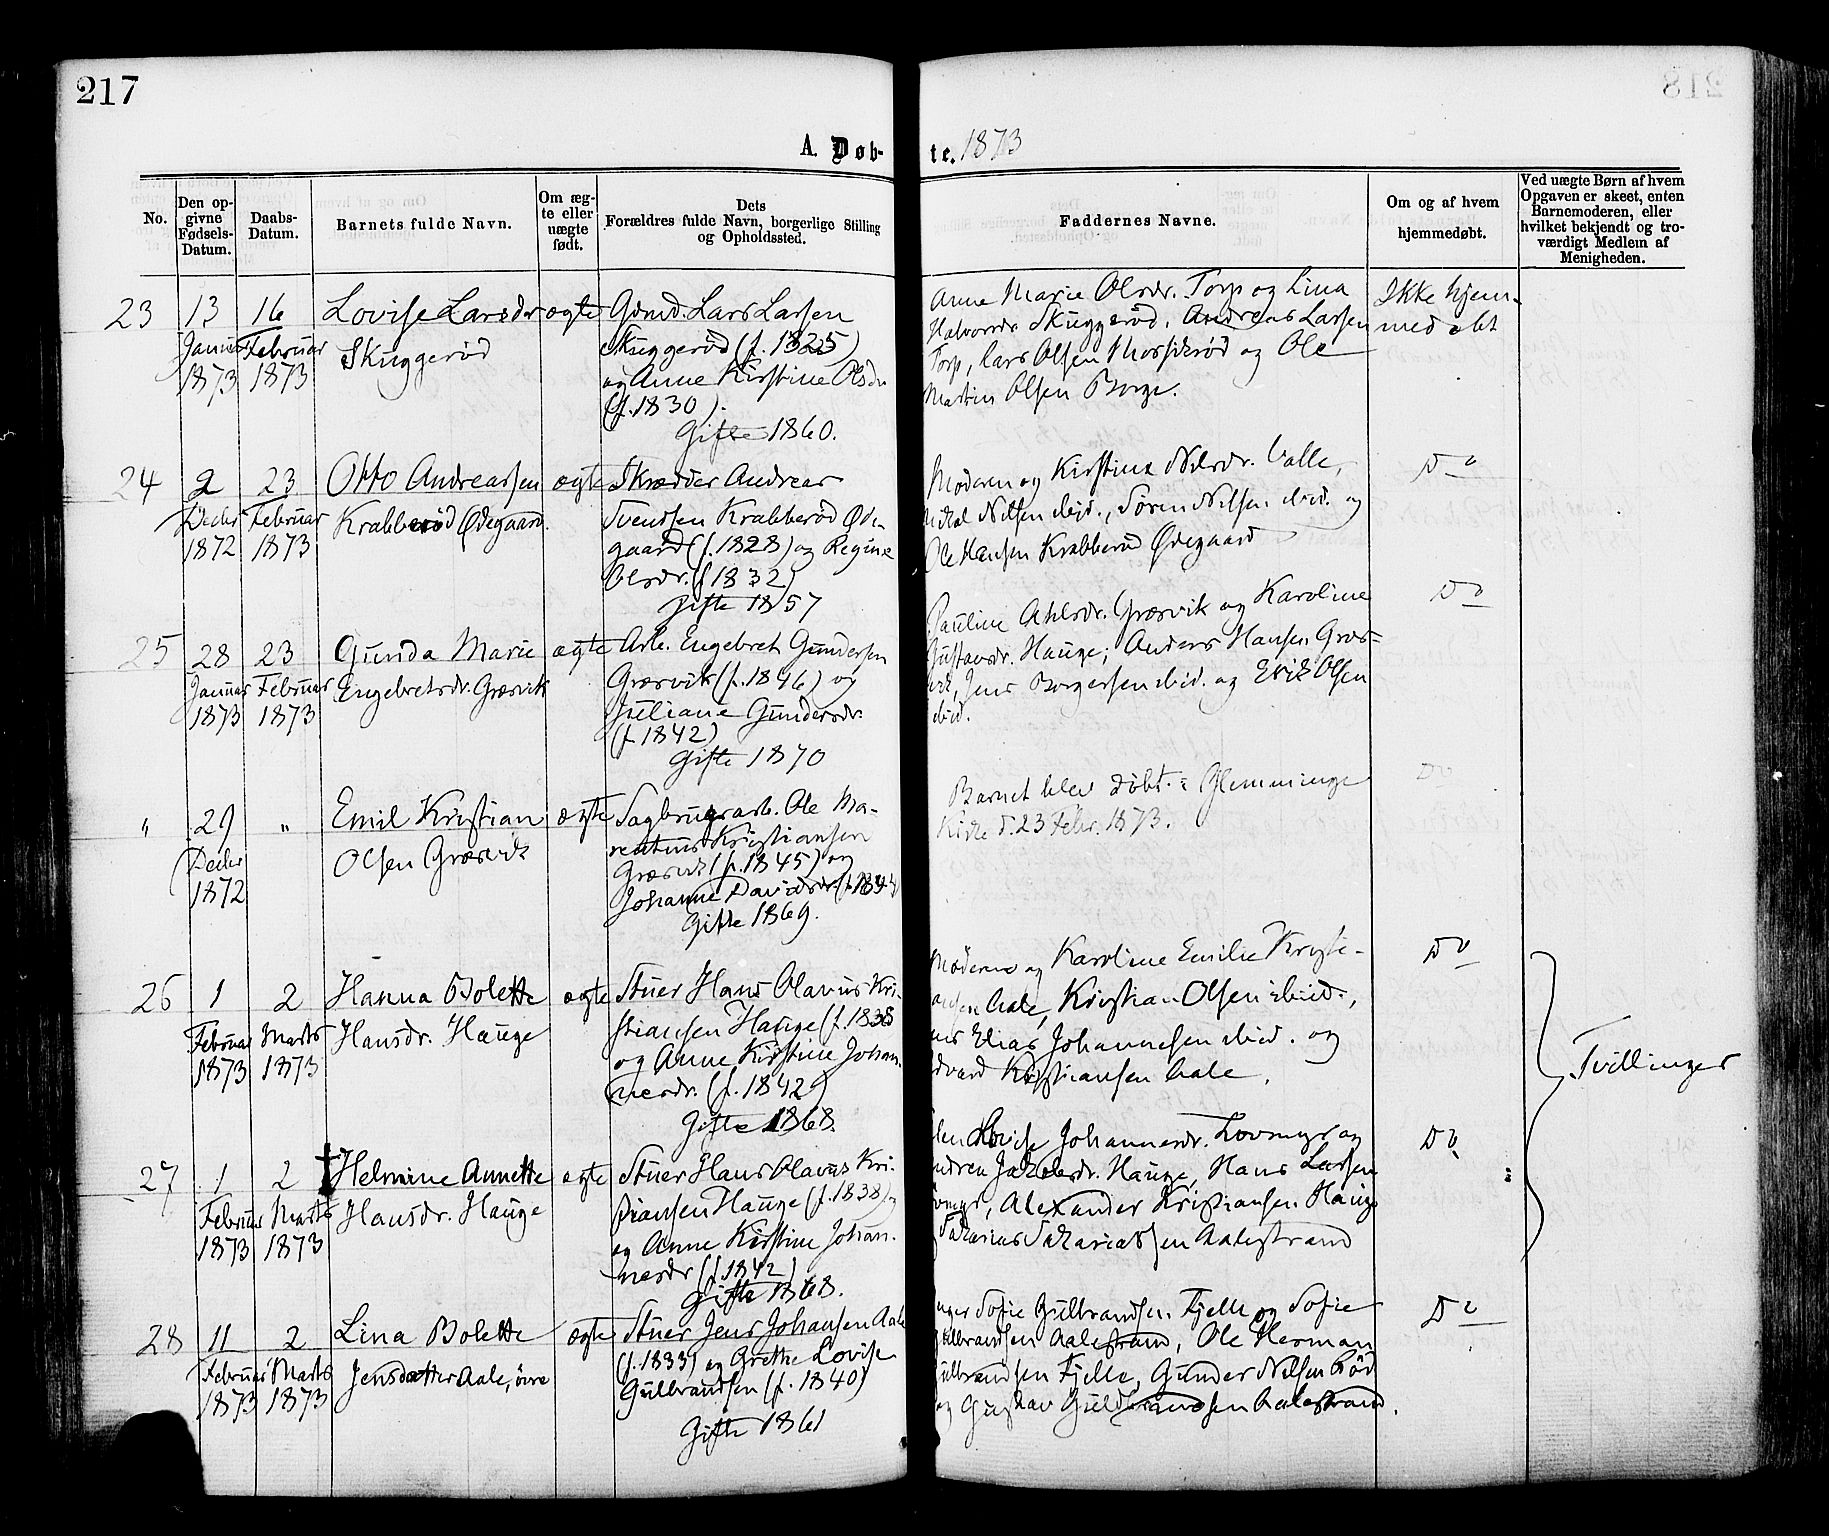 217
A. Døb-
te. 1873
No.
Den op-
givne
Fødsels-
Datum.
Daabs-
Datum.
Barnets fulde Navn.
Om æg-
te eller
uægte
født.
Dets
Forældres fulde Navn, borgerlige Stilling
og Opholdssted.
Faddernes Navne.
Om og af hvem
hjemmedøbt.
Ved uægte Børn af hvem
Opgaven er skeet, enten
Barnemoderen, eller
hvilket bekjendt og tro-
værdigt Medlem af
Menigheden.
23
13
Januar
1873
16
Februar
1873
Lovise Larsdr
Skuggerød
ægte
Gdmd. Lars Larsen
Skuggerød (f. 1825)
og Anne Kirstine Olsdr
(f. 1830).
Gifte 1860.
Anne Marie Olsdr. Torp og Lina
Halvorsdr Skuggerød, Andreas Larsen
Torp, Lars Olsen og Ole
Martin Olsen Borge.
Ikke hjem-
med øbt
24
2
Decbr
1872
23
Februar
1873
Otto Andreassen
Krabberød Ødegaard.
ægte
Skrædder Andreas
Svendsen Krabberød Øde-
gaard (f. 1828) og Regine
Olsdr. (f 1832)
Gifte 1857
Moderen og Kirstine Nilsdr. Valle,
Nilsen ibid., Søren Nilsen ibid. og
Ole Hansen Krabberød Ødegaard
Do
25
28
Januar
1873
23
Februar
1873
Gunda Marie
Engebretsdr. Græsvik
ægte
Arb. Engebret Gundersen
Græsvik (f. 1846) og
Juliane Gundersdr.
(f. 1842)
Gifte 1870
Pauline Græsvik og Karoline
Gustavsdr. Hauge; Anders Hansen Græs-
vik, Jens Borgersen ibid. og Erik Olsen
ibid.
Do
"
29
Decbr
1872
"
Emil Kristian
Olsen Græsvik
ægte
Sagbrugsarb. Ole Ma-
rentius Kristiansen
Græsvik (f. 1845) og
Johanne Davidsdr.
Gifte 1869.
Barnet blev døbt i Glemminge
Kirke d. 23 Febr. 1873.
Do
26
1
Februar
1873
2
Marts
1873
Hanna Bolette
Hansdr. Hauge
ægte
Stuer Hans Olavus Kri-
stiansen Hauge (f. 1838
og Anne Kirstine Johan-
nesdr. (f. 1842)
Gifte 1868.
Moderen og Karoline Emilie Kristi-
ansen Aale, Kristian Olsen ibid.,
Elias Johannesen ibid. og
dvard Kristiansen Aale.
Do
Tvillinger
27
1
Februar
1873
2
Marts
1873
† Helmine Annette
Hansdr. Hauge
ægte
Stuer Hans Olavus Kri-
stiansen Hauge (f. 1838) og
og Anne Kirstine Johan-
nesdr (f. 1842)
Gifte 1868.
Lovise Johannesdr. Lovmyr og
Hauge, Hans Larsen
Alexander Kristiansen Hauge
Sakariassen Aalestrand
Do
28
11
Februar
1873
2
Marts
1873
Lina Bolette
Jensdatter Aale, øvre
ægte
Stuer Jens Johansen Aale
(f. 1833) og Grethe Lovise
Gulbrandsen (f. 1840)
Gifte 1861
Sofie Gulbrandsen Fjelle og Sofie
Gulbrandsen Aalestrand, Ole Herman
Gulbrandsen Fjelle, Gunder Nilsen Rød
og Gustav Guldbrandsen Aalestrand.
Do